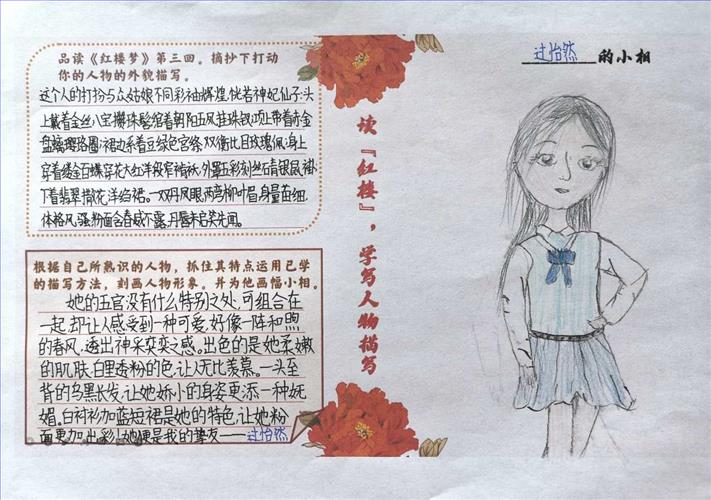 品读《红楼梦》第三回。摘抄下打动
你的人物的外貌描写。
这个人的打扮与众姑娘不同彩袖辉煌,恍若神妃仙子:头
上戴着金丝八宝攒珠髻绾着朝阳五凤挂珠钗,项上带着赤金
盘螭璎珞圈;裙边系着豆绿色宫绦,双衡比目玫瑰佩;身上
穿着缕金百蝶穿花大红洋段窄褃袄,外罩五彩刻丝石青银鼠褂
下着翡翠撒花洋绉裙。一双丹凤眼,两弯柳叶眉,身量苗细,
体格风骚粉面含春威不露,丹唇未启笑先闻。
根据自己所熟识的人物,抓住其特点运用已学
的描写方法,刻画人物形象。并为他画幅小相。
她的五官没有什么特别之处,可组合在
一起,却让人感受到一种可爱,好像一阵和煦
的春风,透出神采奕奕之感。出色的是她柔嫩
的肌肤,白里透粉的色,让人无比羡慕。一头至
背的乌黑长发,让她娇小的身姿更添一种妩
媚。白衬衫加蓝短裙是她的特色,让她粉
面更加出彩!她便是我的挚友——过怡然
读『红楼』,学写人物描写
过怡然 的小相